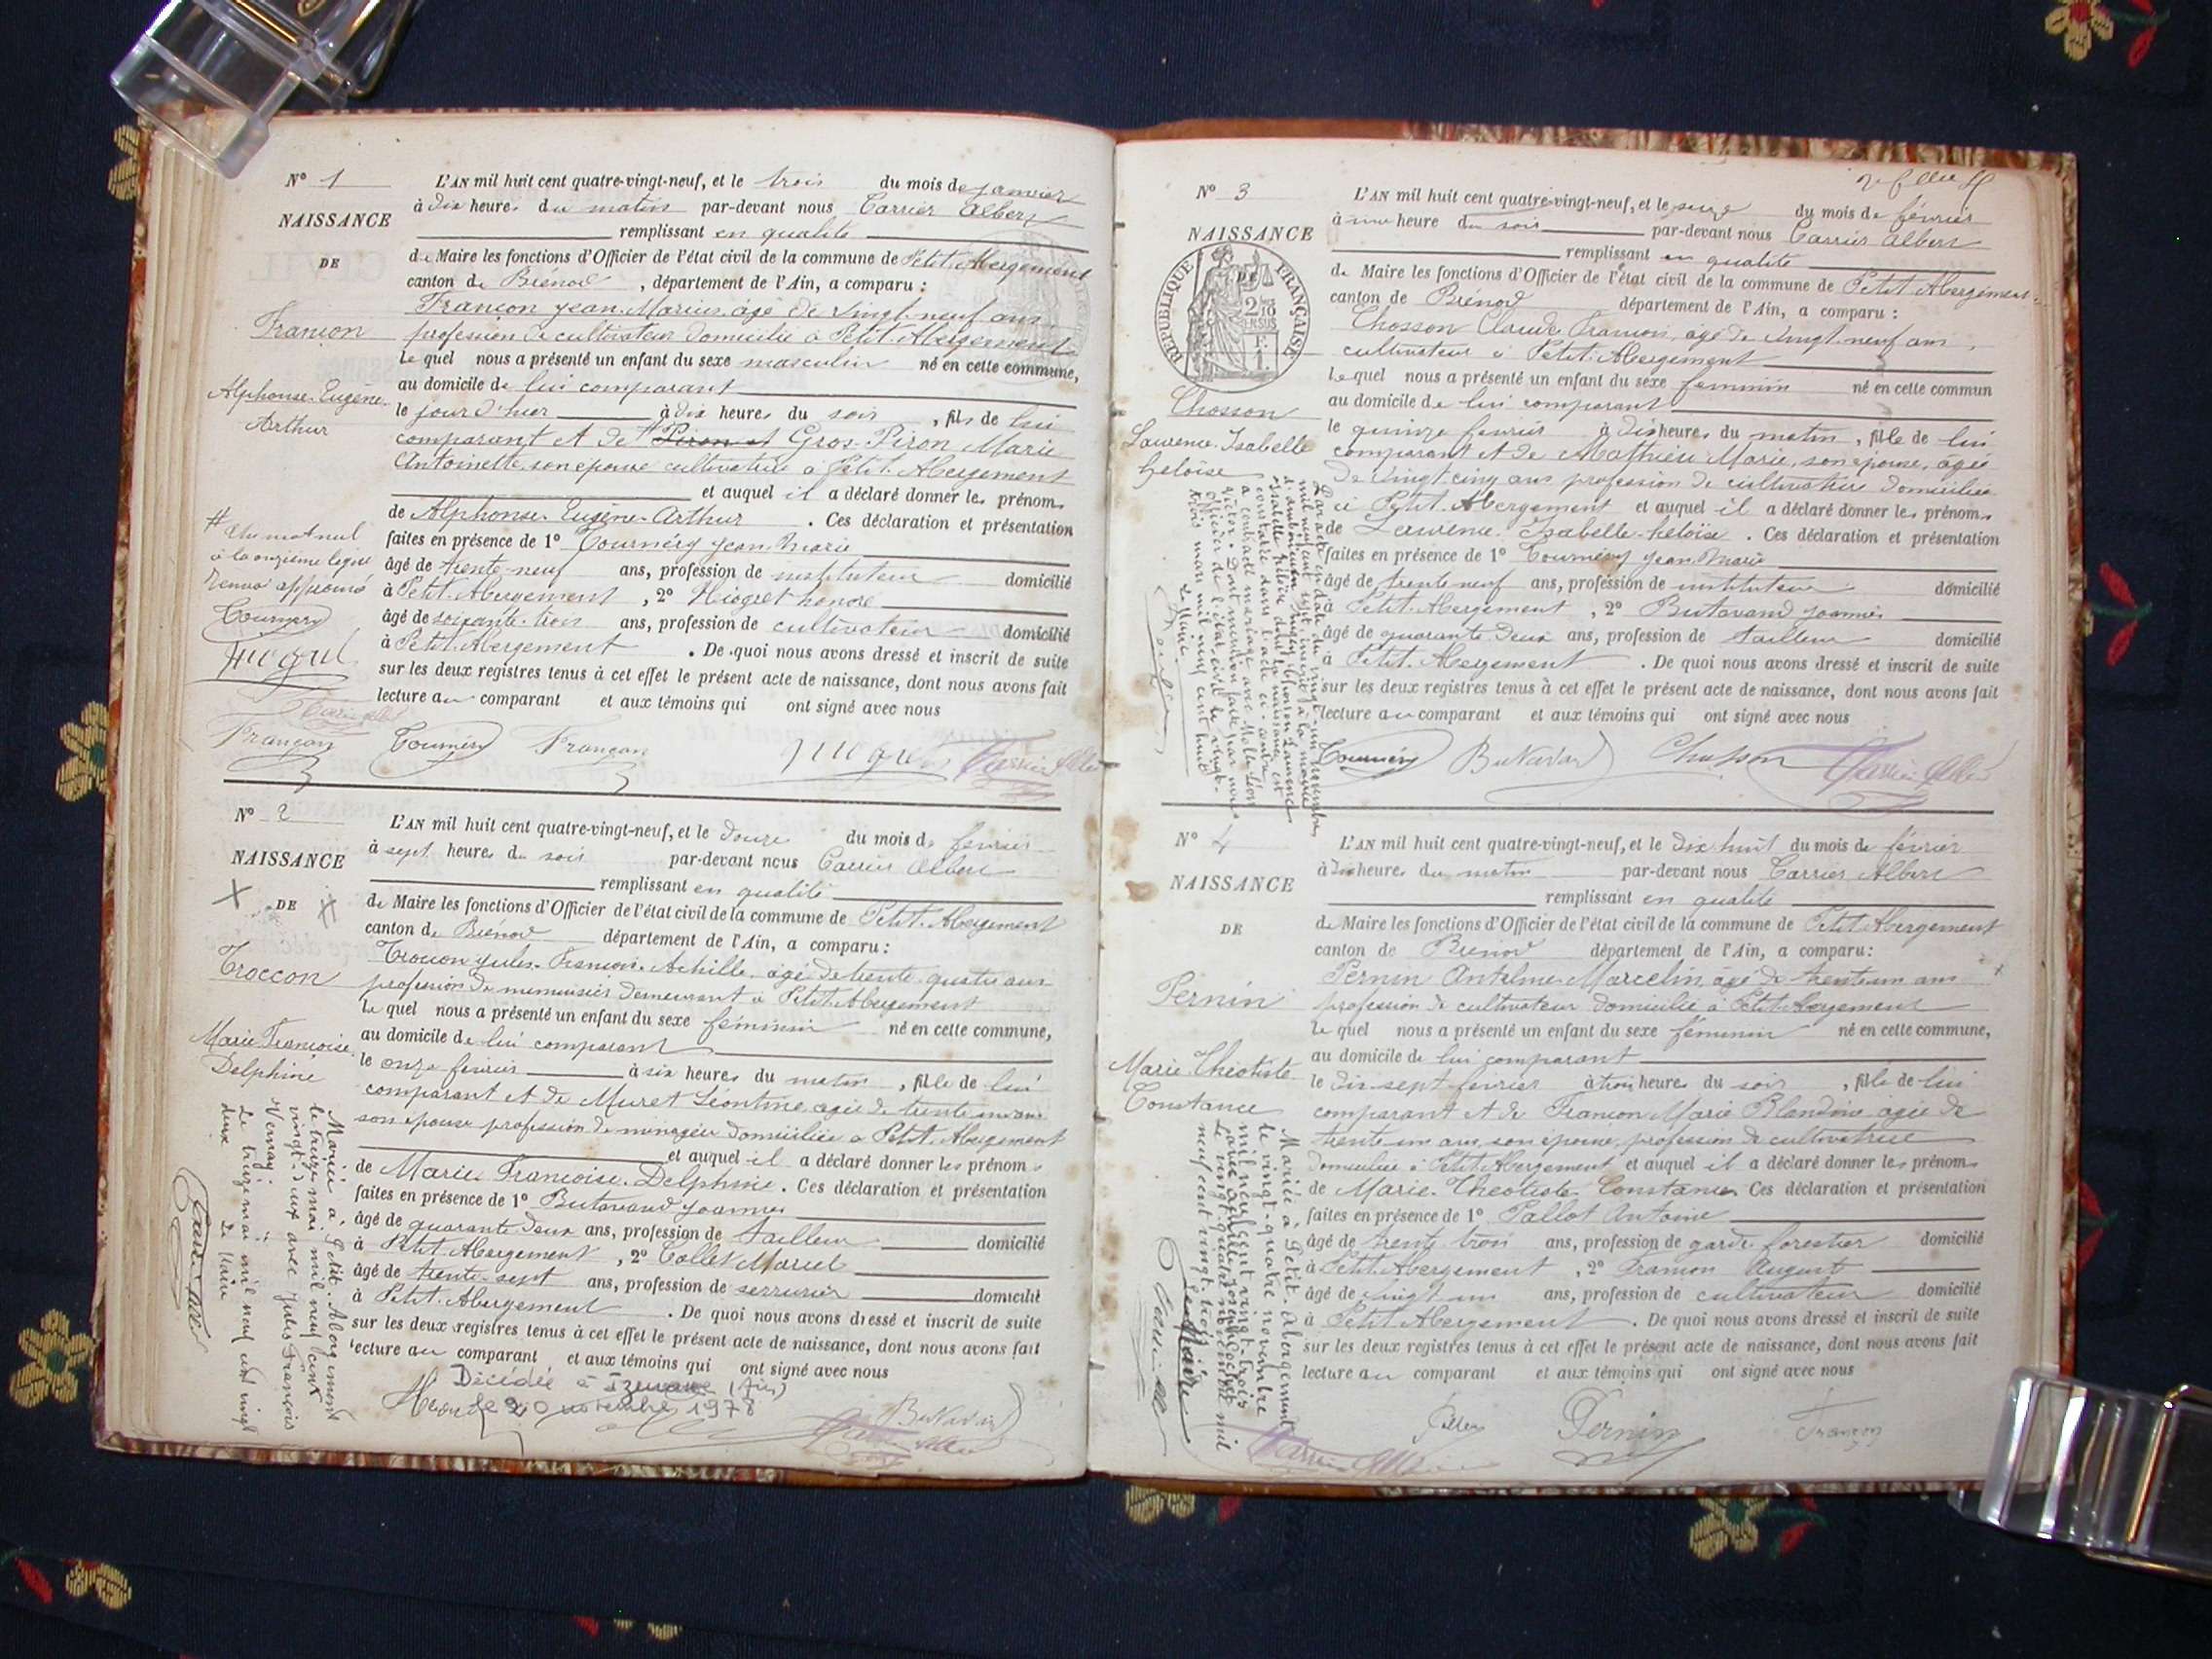 Nº 1
NAISSANCE
DE
Francon
Alphonse-Eugène-
Arthur
L'AN mil huit cent quatre-vingt-neuf, et le trois du mois de janvier
à dix heures du matin par-devant nous Carrier Albert
remplissant en qualité
de Maire les fonctions d'Officier de l'état civil de la commune de Petit-Abergement
canton de Brénod, département de l'Ain, a comparu :
Francon Jean-Marius, âgé de vingt-neuf ans
profession de cultivateur domicilié à Petit-Abergement
lequel nous a présenté un enfant du sexe masculin né en cette commune,
au domicile de lui comparant
le jour d'hier à dix heures du soir, fils de lui
comparant et de # Piron et Gros-Piron Marie
Antoinette, son épouse cultivatrice à Petit-Abergement
et auquel il a déclaré donner les prénoms
de Alphonse-Eugène-Arthur. Ces déclaration et présentation
faites en présence de 1º Tournéry Jean-Marie
âgé de trente-neuf ans, profession de instituteur domicilié
à Petit-Abergement, 2º honoré
âgé de soixante-trois ans, profession de cultivateur domicilié
à Petit-Abergement. De quoi nous avons dressé et inscrit de suite
sur les deux registres tenus à cet effet le présent acte de naissance, dont nous avons fait
lecture au comparant et aux témoins qui ont signé avec nous
# Un mot nul
à la onzième ligne
renvoi approuvé
Tournéry
Françon Tournéry Françon
Nº 2
NAISSANCE
DE
Troccon
Marie Françoise
Delphine
L'AN mil huit cent quatre-vingt-neuf, et le douze du mois de février
à sept heures du soir par-devant nous Carrier Albert
remplissant en qualité
de Maire les fonctions d'Officier de l'état civil de la commune de Petit-Abergement
canton de Brénod département de l'Ain, a comparu :
Troccon Jules-François-Achille, âgé de trente-quatre ans
profession de menuisier demeurant à Petit-Abergement
lequel nous a présenté un enfant du sexe féminin né en cette commune,
au domicile de lui comparant
le onze février à six heures du matin, fille de lui
comparant et de Muret Léontine, âgée de trente ans
son épouse profession de ménagère domiciliée à Petit-Abergement
et auquel il a déclaré donner les prénoms
de Marie-Françoise-Delphine. Ces déclaration et présentation
faites en présence de 1º Butavand Joannès
âgé de quarante-deux ans, profession de tailleur domicilié
à Petit-Abergement, 2º Collet Marcel
âgé de trente-sept ans, profession de serrurier domicilié
à Petit-Abergement. De quoi nous avons dressé et inscrit de suite
sur les deux registres tenus à cet effet le présent acte de naissance, dont nous avons fait
lecture au comparant et aux témoins qui ont signé avec nous
Mariée à Petit-Abergement
le treize mai mil neuf cent
vingt-deux avec Jules François
Vernay.
Le treize mai mil neuf cent vingt
deux Le Maire
Décédée à (Ain)
le 20 novembre 1978
Butavand
Nº 3
NAISSANCE
DE
RÉPUBLIQUE FRANÇAISE
Chosson
Laurence-Isabelle
Héloïse
L'AN mil huit cent quatre-vingt-neuf, et le seize du mois de février
à une heure du soir par-devant nous Carrier Albert
remplissant en qualité
de Maire les fonctions d'Officier de l'état civil de la commune de Petit-Abergement
canton de Brénod département de l'Ain, a comparu :
Chosson Claude François, âgé de vingt-neuf ans,
cultivateur à Petit-Abergement
lequel nous a présenté un enfant du sexe féminin né en cette commun
au domicile de lui comparant
le quinze février à dix heures du matin, fille de lui
comparant et de Mathieu Marie, son épouse, âgée
de vingt-cinq ans profession de cultivatrice domiciliée
à Petit-Abergement et auquel il a déclaré donner les prénoms
de Laurence-Isabelle-héloïse. Ces déclaration et présentation
faites en présence de 1º Tournéry Jean-Marie
âgé de trente-neuf ans, profession de instituteur domicilié
à Petit-Abergement, 2º Butavand Joannès
âgé de quarante-deux ans, profession de tailleur domicilié
à Petit-Abergement. De quoi nous avons dressé et inscrit de suite
sur les deux registres tenus à cet effet le présent acte de naissance, dont nous avons fait
lecture au comparant et aux témoins qui ont signé avec nous
Tournéry Butavand Chosson
Nº 4
NAISSANCE
DE
Pernin
Marie-Théotiste
Constance
L'AN mil huit cent quatre-vingt-neuf, et le dix-huit du mois de février
à dix heures du matin par-devant nous Carrier Albert
remplissant en qualité
de Maire les fonctions d'Officier de l'état civil de la commune de Petit-Abergement
canton de Brénod département de l'Ain, a comparu :
Pernin Anthelme-Marcelin, âgé de trente-un ans
profession de cultivateur domicilié à Petit-Abergement
lequel nous a présenté un enfant du sexe féminin né en cette commune,
au domicile de lui comparant
le dix-sept février à trois heures du soir, fille de lui
comparant et de Francon Marie Blandine âgée de
trente-un ans, son épouse, profession de cultivatrice
domiciliée à Petit-Abergement et auquel il a déclaré donner les prénoms
de Marie-Théotiste-Constance. Ces déclaration et présentation
faites en présence de 1º Pallot Antoine
âgé de trente-trois ans, profession de garde forestier domicilié
à Petit-Abergement, 2º Francon Auguste
âgé de vingt-un ans, profession de cultivateur domicilié
à Petit-Abergement. De quoi nous avons dressé et inscrit de suite
sur les deux registres tenus à cet effet le présent acte de naissance, dont nous avons fait
lecture au comparant et aux témoins qui ont signé avec nous
Mariée à Petit-Abergement
le vingt-quatre novembre
mil neuf cent vingt-trois
Le Maire
Pernin Françon